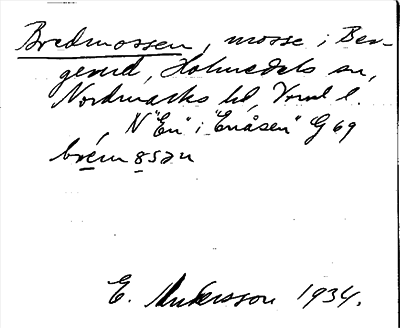 Bredmossen, mosse i Ber-
gerud, Holmedals sn,
Nordmarks hd, Vrml l.
N "En" i "Enåsen" G 69
brem85an
E. Andersson 1934.